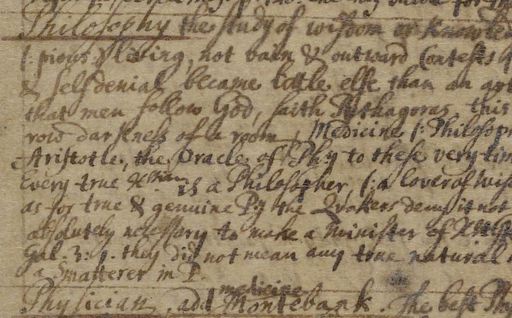 Philosophy the study of wisdom or knowle
(: pious living, not vain & outward Contests
& selfdenial became little else than an art
that men follow God, saith Pythagoras this
roid darkness of a room, Medicine (: Philosop
Aristotle, the Oracle of Phy to these very tim
Every true Xtian is a Philosopher, (: a lover of wis
as for true & genuine Py the Quakers deny it not
absolutely necessary to make a Minister of
Gal. 3. 1. they did not mean any true natural
a smatterer in P.
Physician, add medicine Montebank. The best Phy